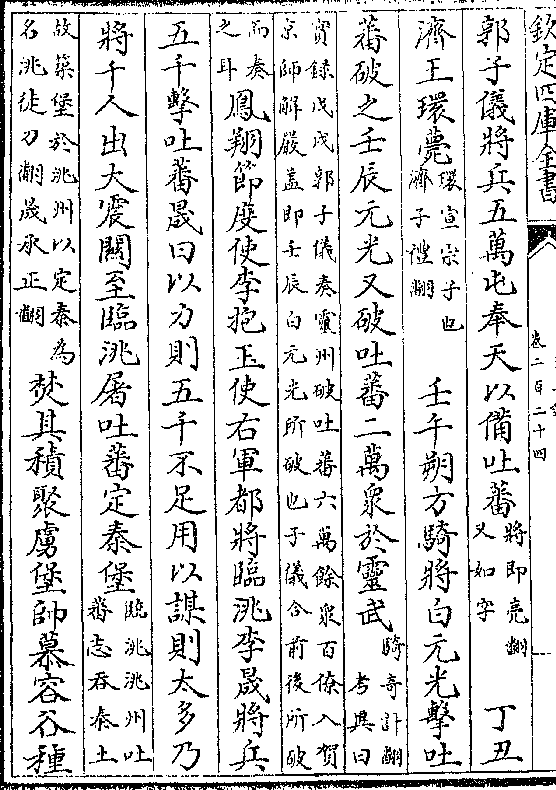 欽定四庫全書
卷二百二十四
郭子儀將兵五萬屯奉天以備吐蕃將即亮翻又如字 丁丑
濟王環薨環宣宗子也濟子禮翻 壬午朔方騎將白元光擊吐
蕃破之壬辰元光又破吐蕃二萬衆於靈武騎奇計翻考異曰
實録戊戌郭子儀奏靈州破吐蕃六萬餘衆百僚入賀
京師解嚴盖即壬辰白元光所破也子儀合前後所破
而奏之耳鳳翔節度使李抱玉使右軍都將臨洮李晟將兵
五千擊吐蕃晟曰以力則五千不足用以謀則太多乃
將千人出大震關至臨洮屠吐蕃定秦堡臨洮洮州吐蕃志吞秦土
故築堡於洮州以定秦為名洮徒刀翻晟承正翻焚其積聚虜堡帥慕容谷種